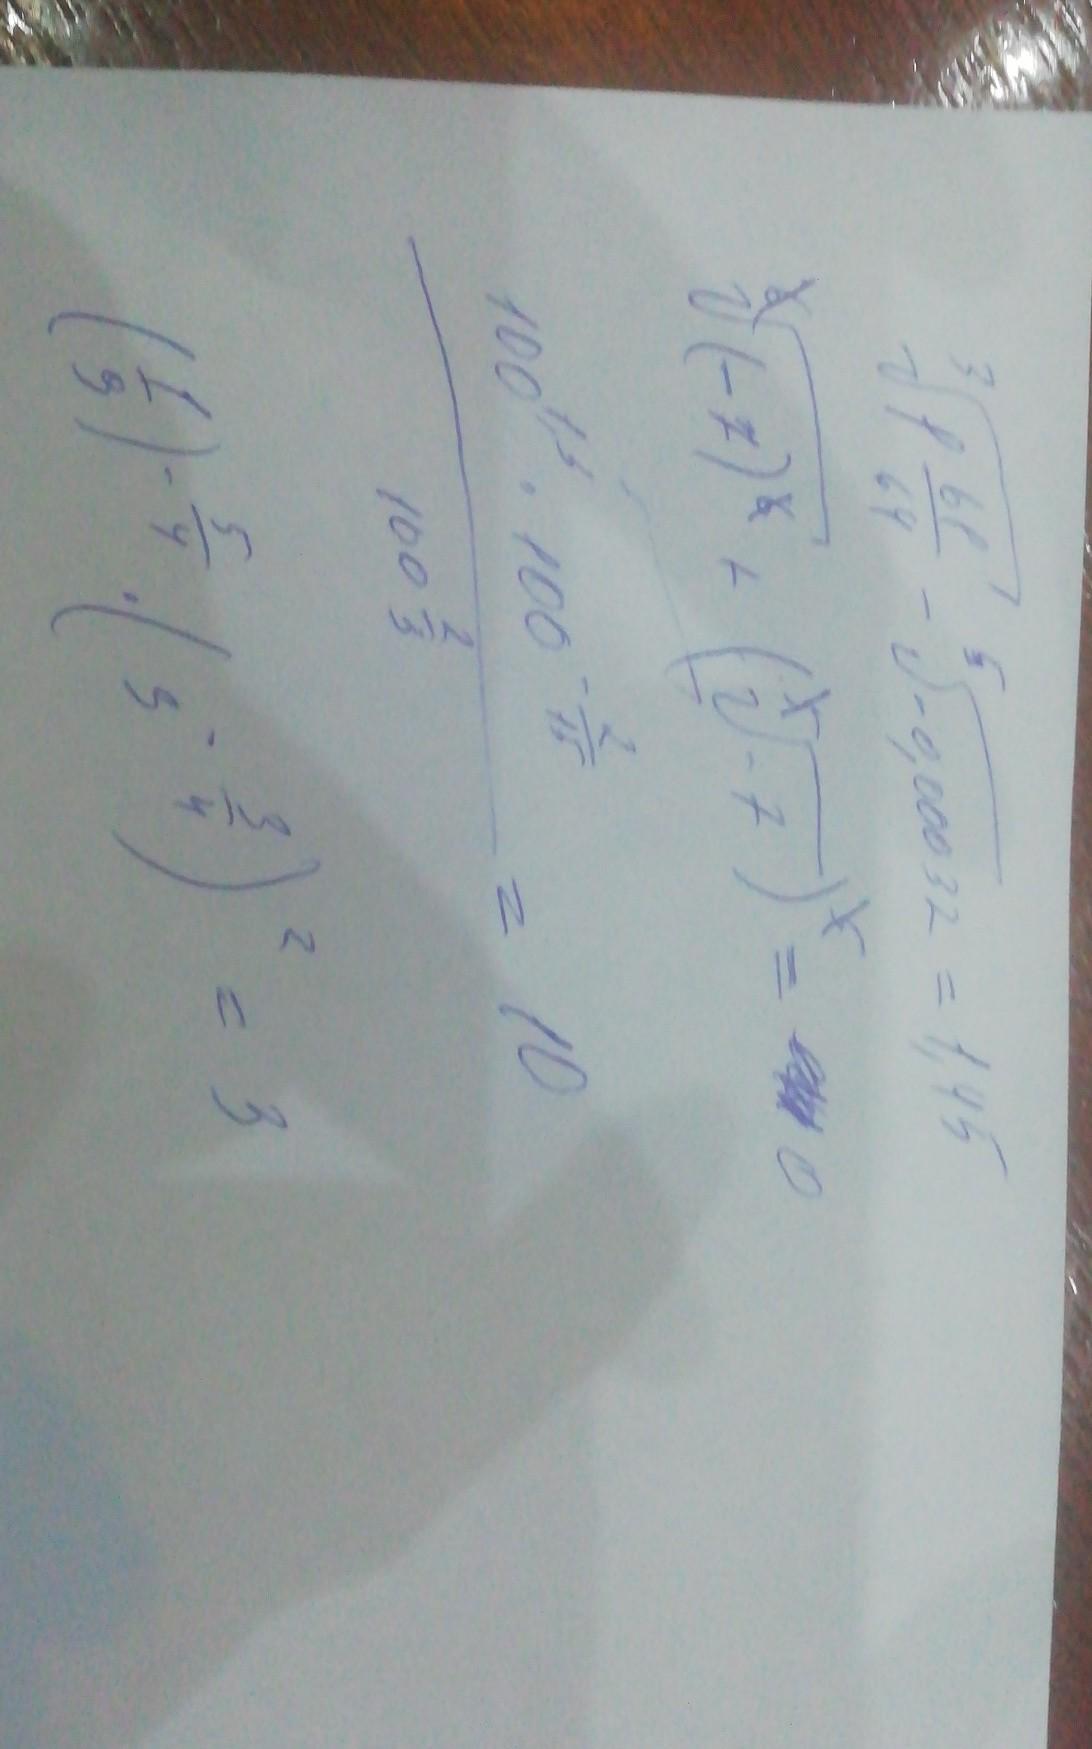 ³√(1 61/64) - ⁵√(-0,00032) = 1,45
⁸√((-7)⁸) + (⁷√(-7))⁷ = 0
(100^1,3 · 100^(-2/15)) / 100^(2/3) = 10
(1/9)^(-5/4) · (3^(-3/4))² = 3